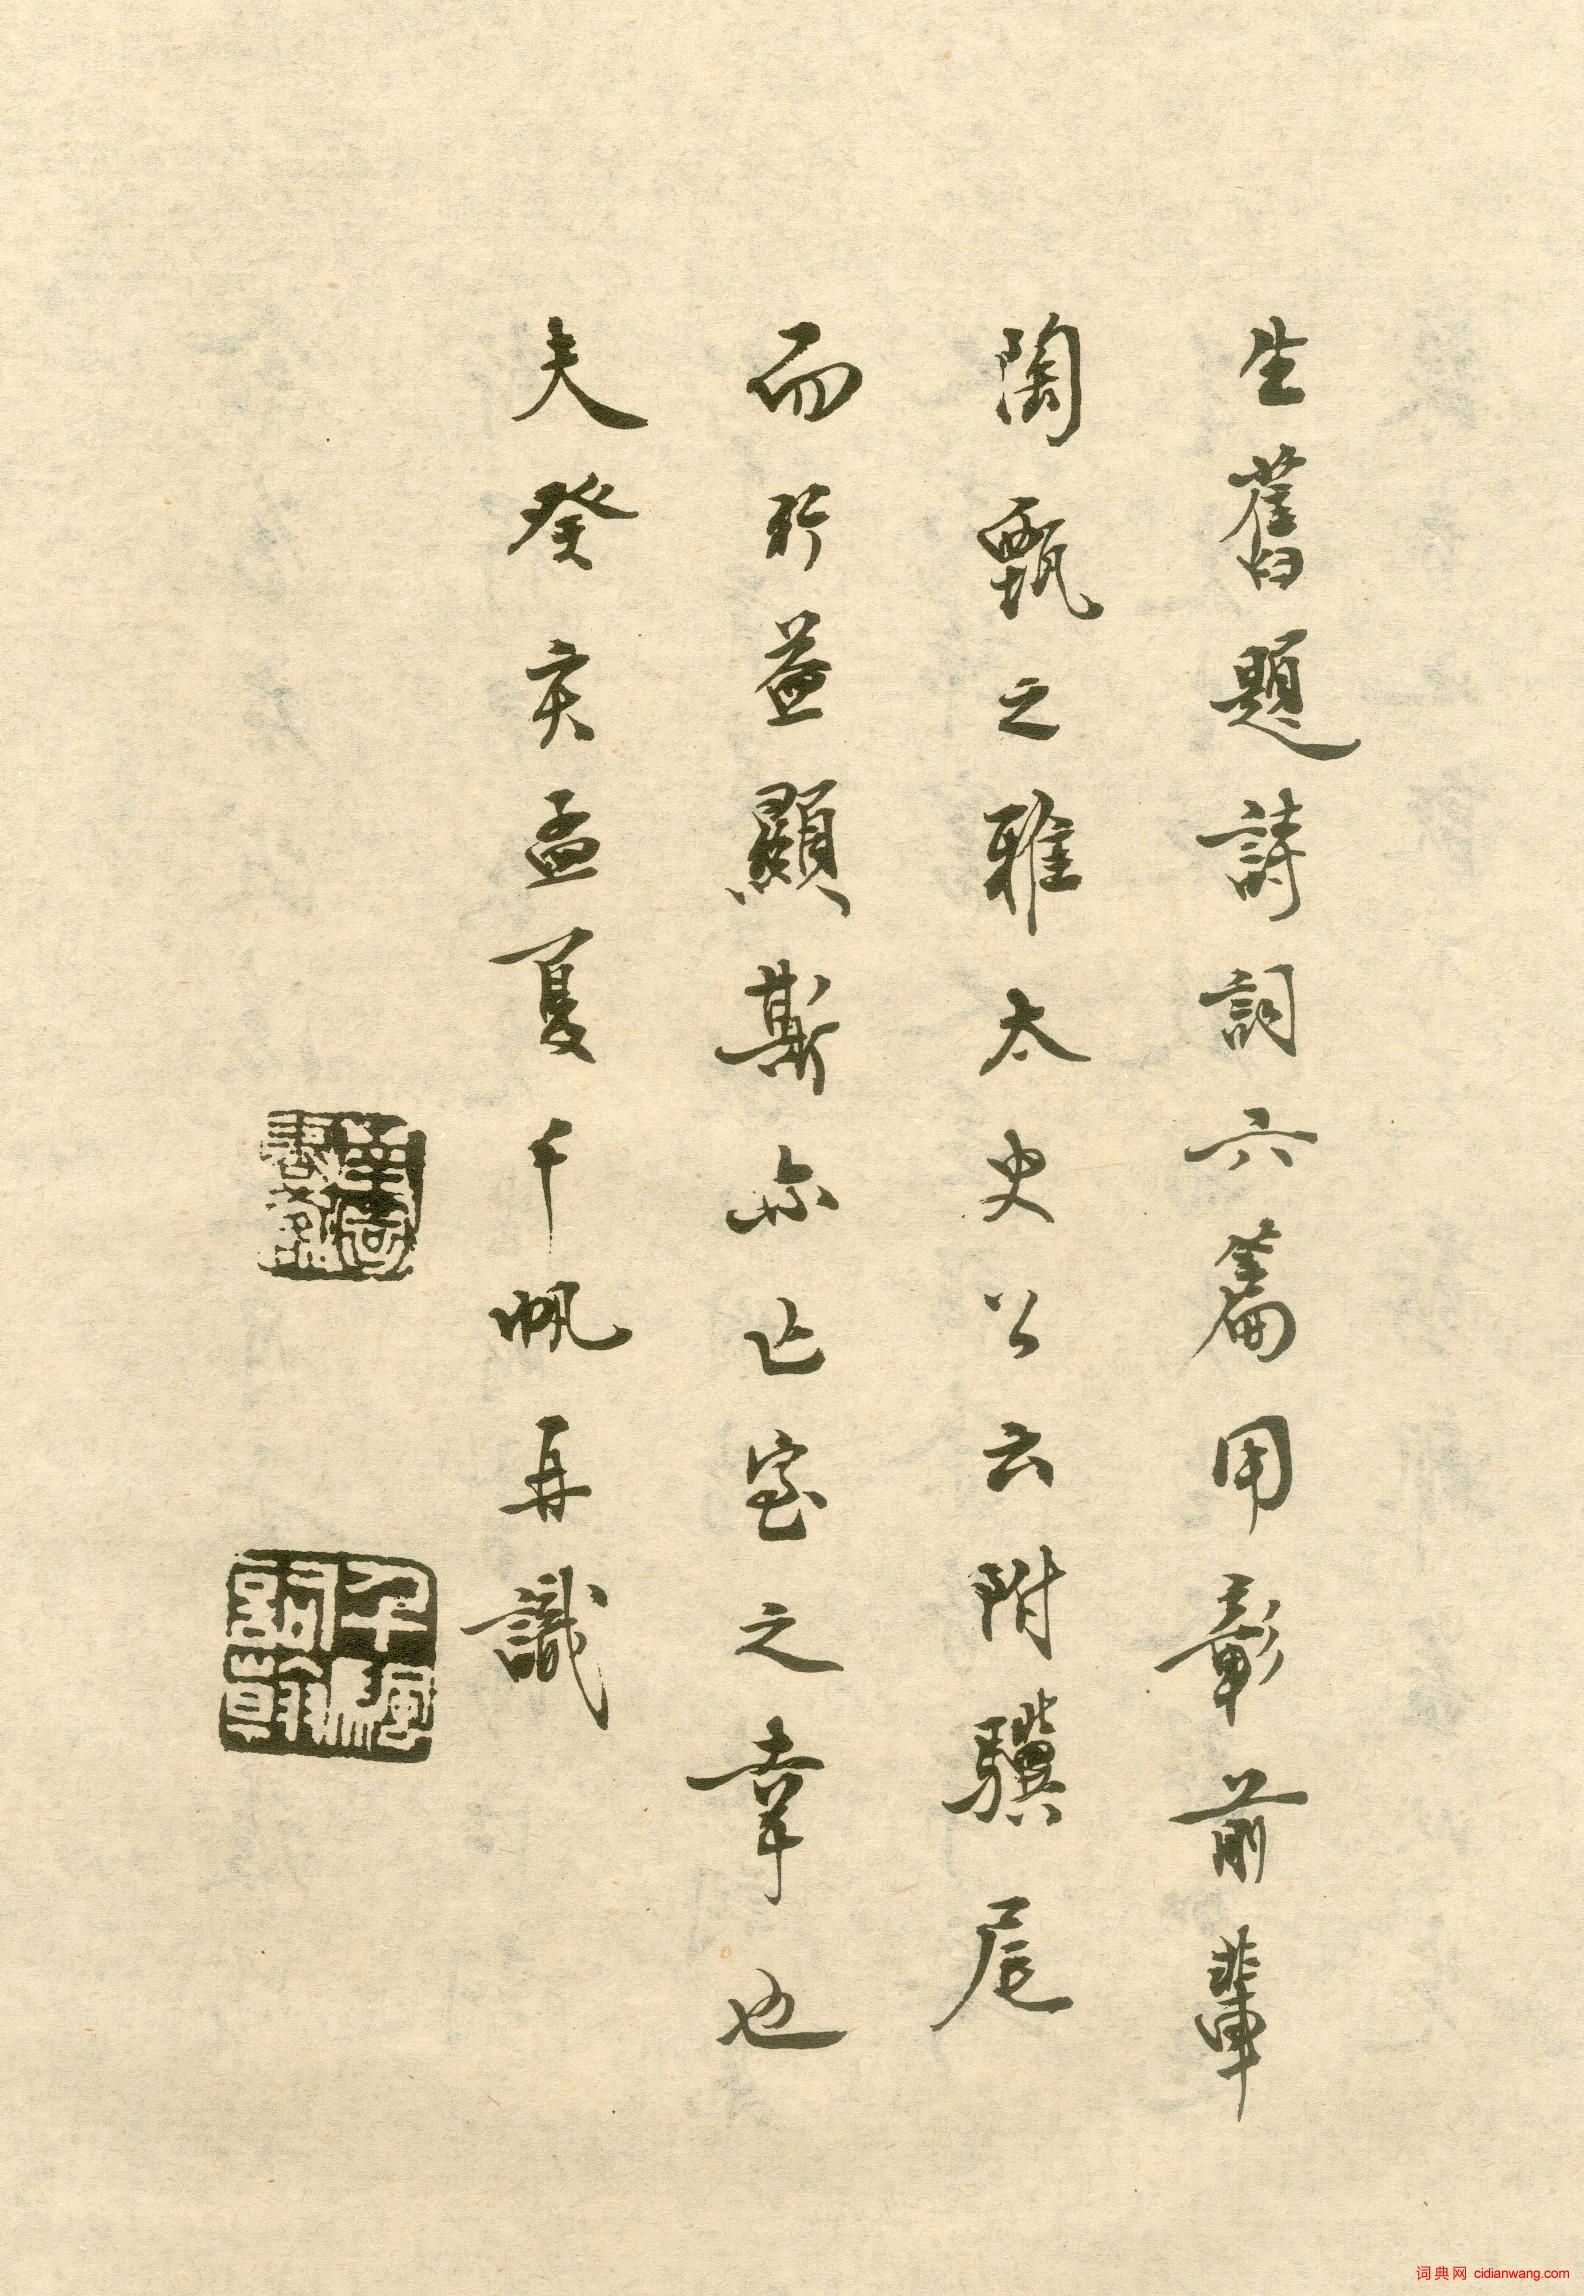 生舊題詩詞六篇用彰前輩
陶甄之雅太史公云附驥尾
而行益顯斯亦亡室之幸也
夫癸亥孟夏千帆再識
词典网 cidianwang.com